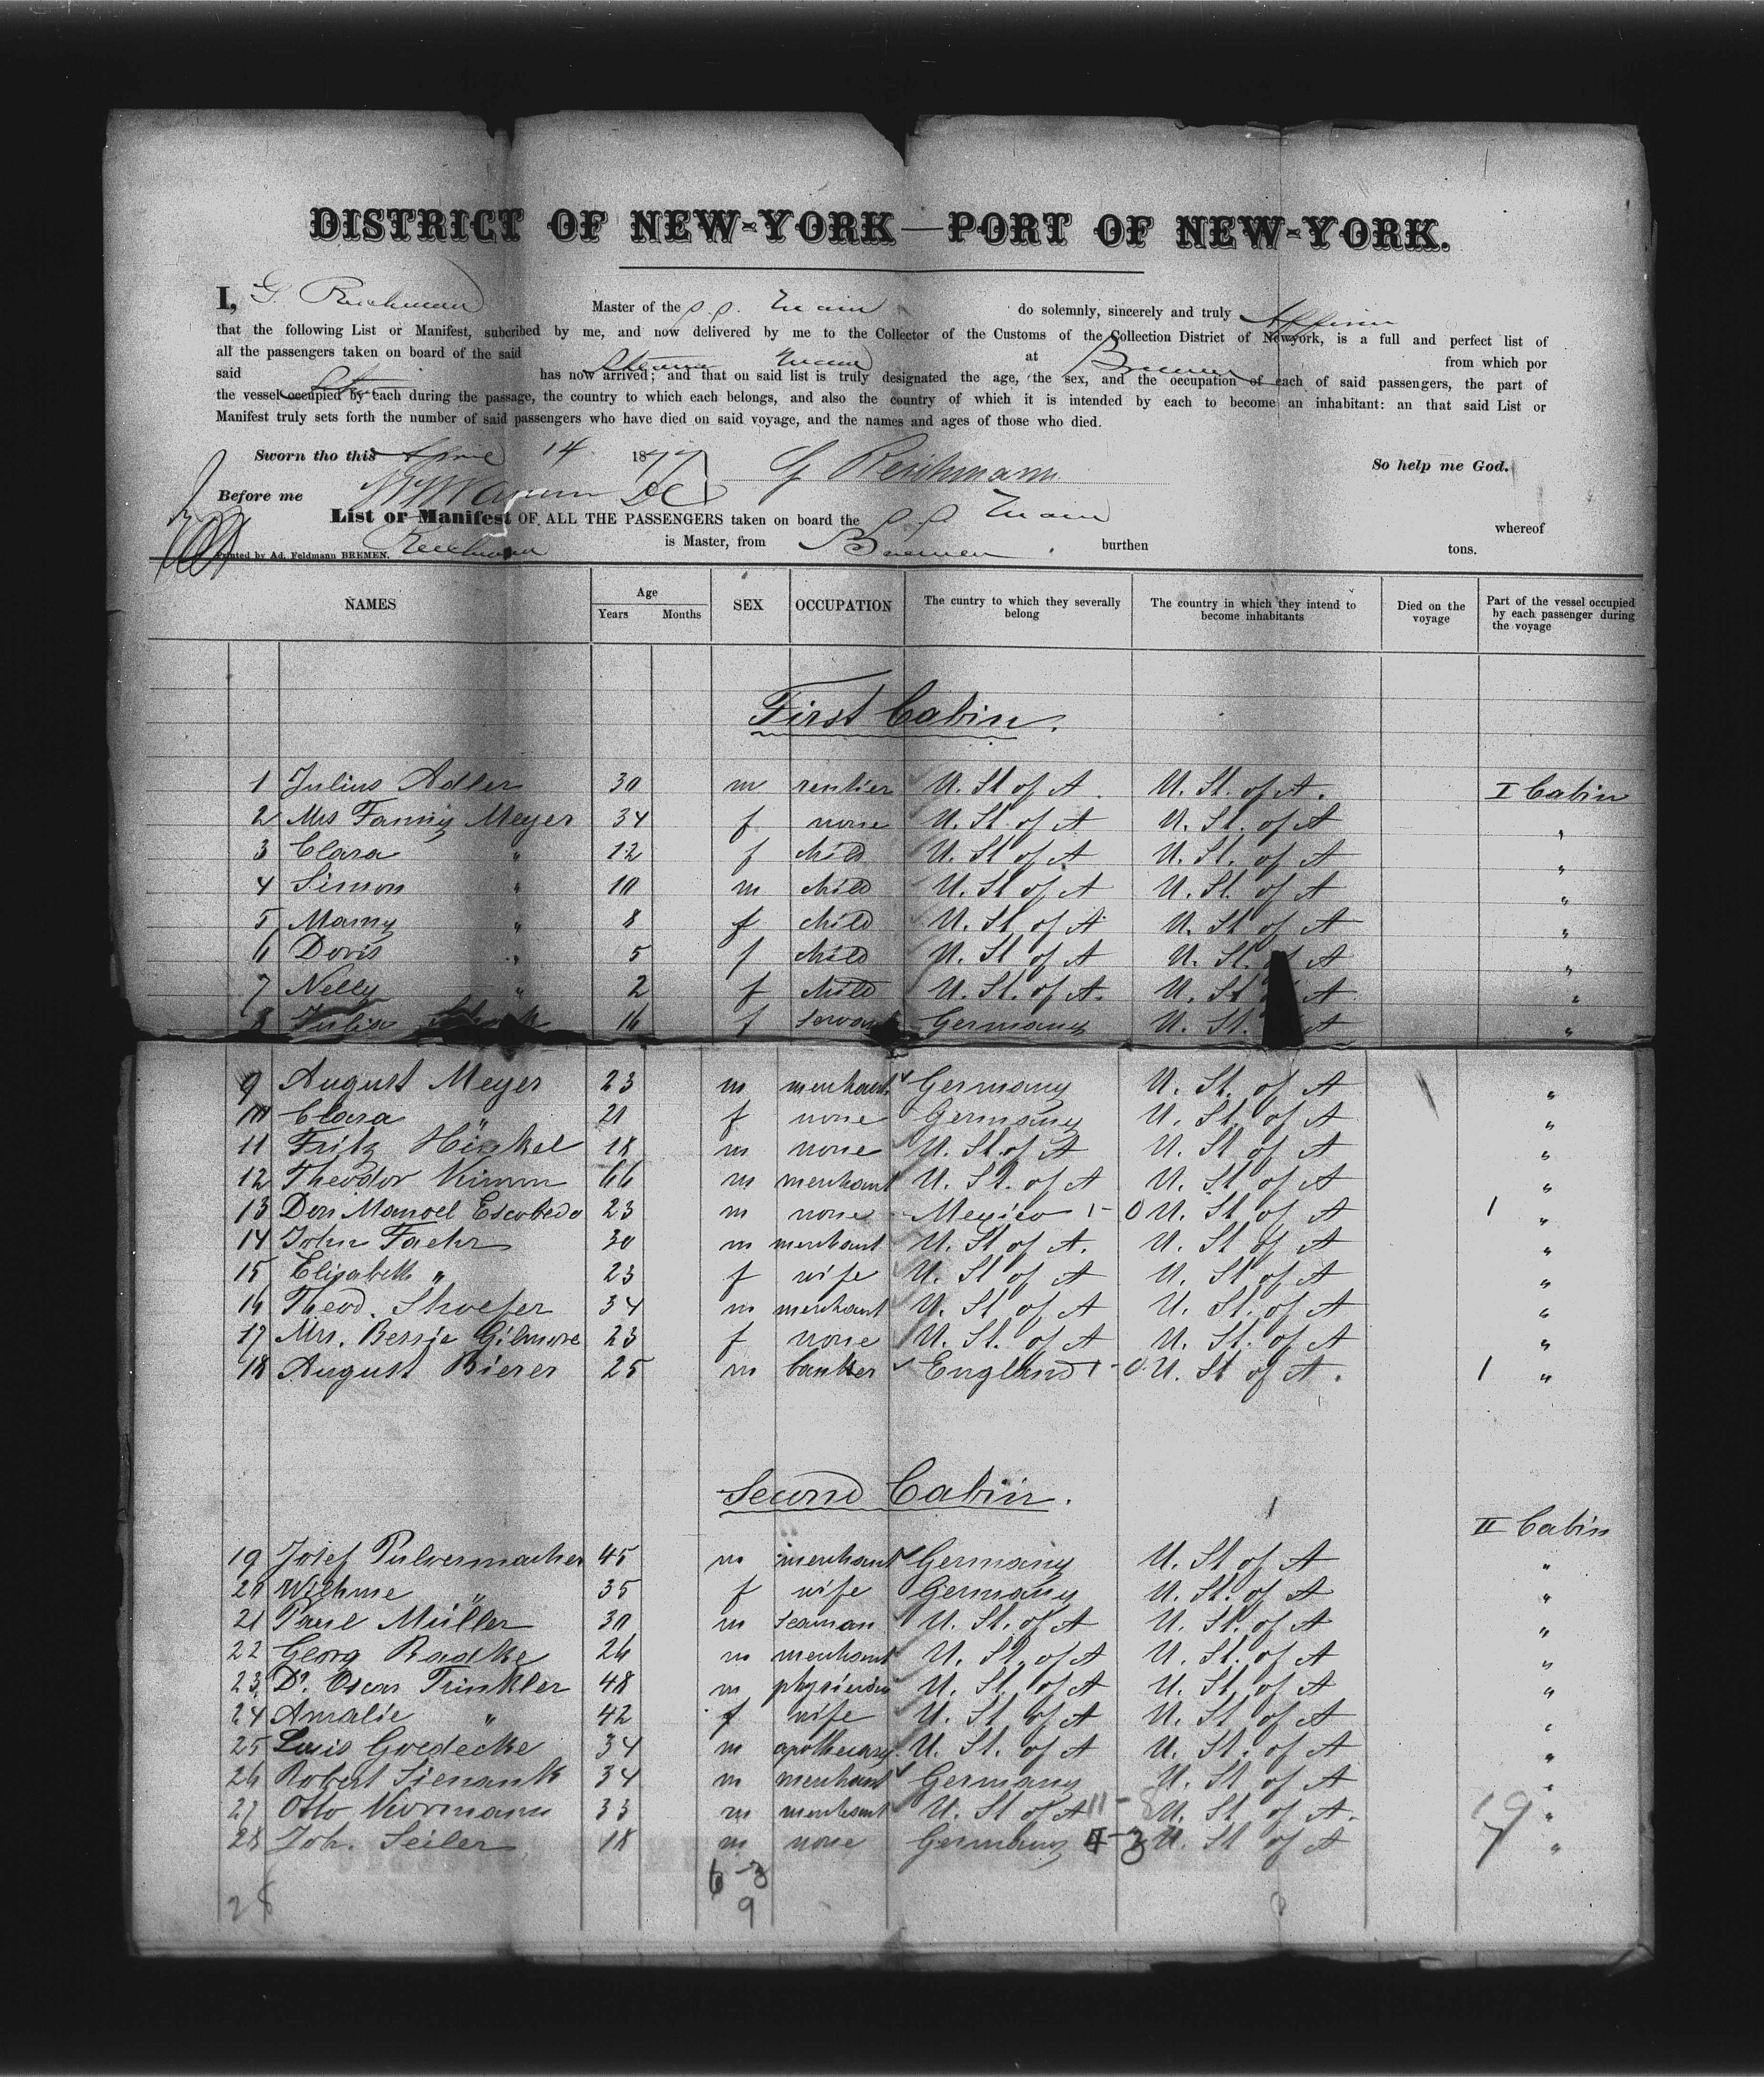 DISTRICT OF NEW-YORK—PORT OF NEW-YORK.
I, G. Reichmann Master of the s.s. Main do solemnly, sincerely and truly Affirm
that the following List or Manifest, subcribed by me, and now delivered by me to the Collector of the Customs of the Collection District of Newyork, is a full and perfect list of
all the passengers taken on board of the said Steamer Main at Bremen from which por
said Str has now arrived; and that on said list is truly designated the age, the sex, and the occupation of each of said passengers, the part of
the vessel occupied by each during the passage, the country to which each belongs, and also the country of which it is intended by each to become an inhabitant: an that said List or
Manifest truly sets forth the number of said passengers who have died on said voyage, and the names and ages of those who died.
Sworn tho this April 14 1877 G Reichmann So help me God.
Before me
List or Manifest OF ALL THE PASSENGERS taken on board the s.s. Main whereof
Printed by Ad. Feldmann BREMEN. Reichmann is Master, from Bremen burthen tons.
NAMES Age Years Months SEX OCCUPATION The cuntry to which they severally belong The country in which they intend to become inhabitants Died on the voyage Part of the vessel occupied by each passenger during the voyage
First Cabin.
1 Julius Adler 30 m rentier U. St of A. U. St. of A. I Cabin
2 Mrs Fanny Meyer 34 f none U. St. of A U. St. of A "
3 Clara " 12 f child U. St of A U. St. of A "
4 Simon " 10 m child U. St of A U. St. of A "
5 Mamy " 8 f child U. St of A U. St of A "
6 Doris " 5 f child U. St of A U. St. of A "
7 Nelly " 2 f child U. St. of A. U. St A "
8 Julia 16 f servant Germany U. St. A "
9 August Meyer 23 m merchant Germany U. St. of A "
10 Clara " 21 f none Germany U. St. of A "
11 Fritz Hinkel 18 m none U. St. of A U. St of A "
12 Theodor Kimm 66 m merchant U. St. of A U. St of A "
13 Don Manoel Escobedo 23 m none Mexico 1- 0 U. St of A 1 "
14 John Faehr 30 m merchant U. St of A. U. St of A "
15 Elisabeth " 23 f wife U. St of A U. St of A "
16 Theod. Shoefer 34 m merchant U. St of A U. St. of A "
17 Mrs. Bessie Gilmore 23 f none U. St. of A U. St. of A "
18 August Bierer 25 m banker England 1- 0. U. St of A. 1 "
Second Cabin.
II Cabin
19 Josef Pulvermacher 45 m merchant Germany U. St of A "
20 Wilhme " 35 f wife Germany U. St. of A "
21 Paul Müller 30 m seaman U. St. of A U. St. of A "
22 Georg Radke 26 m merchant U. St. of A U. St. of A "
23. Dr. Oscar Trinkler 48 m physician U. St. of A U. St. of A "
24 Amalie " 42 f wife U. St of A U. St of A "
25 Louis Goedecke 34 m apothecary U. St. of A U. St. of A "
26 Robert Sienank 34 m merchant Germany U. St of A "
27 Otto Kormann 33 m merchant U. St of A 11-8 U. St of A. 19 "
28 Joh. Seiler 18 m none Germany 4-3 U. St of A 7 "
6-3
28 9